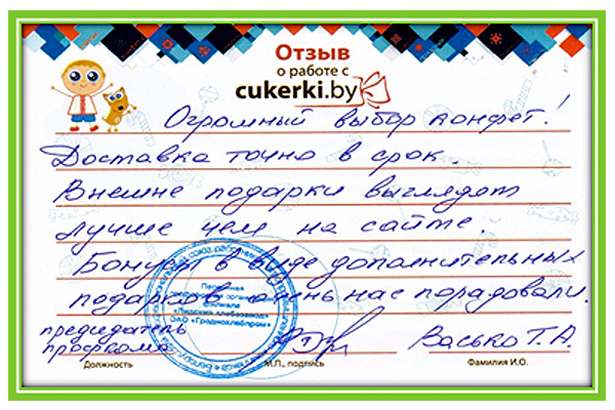 Отзыв
о работе с
cukerki.by
Огромный выбор конфет!
Доставка точно в срок.
Внешне подарки выглядят
лучше чем на сайте.
Бонусы в виде дополнительных
подарков очень нас порадовали.
председатель
профкома
Васько Т.А.
Должность
М.П., подпись
Фамилия И.О.
Первичная
«Лидский хлебозавод»
ОАО «Гроднохлебпром»